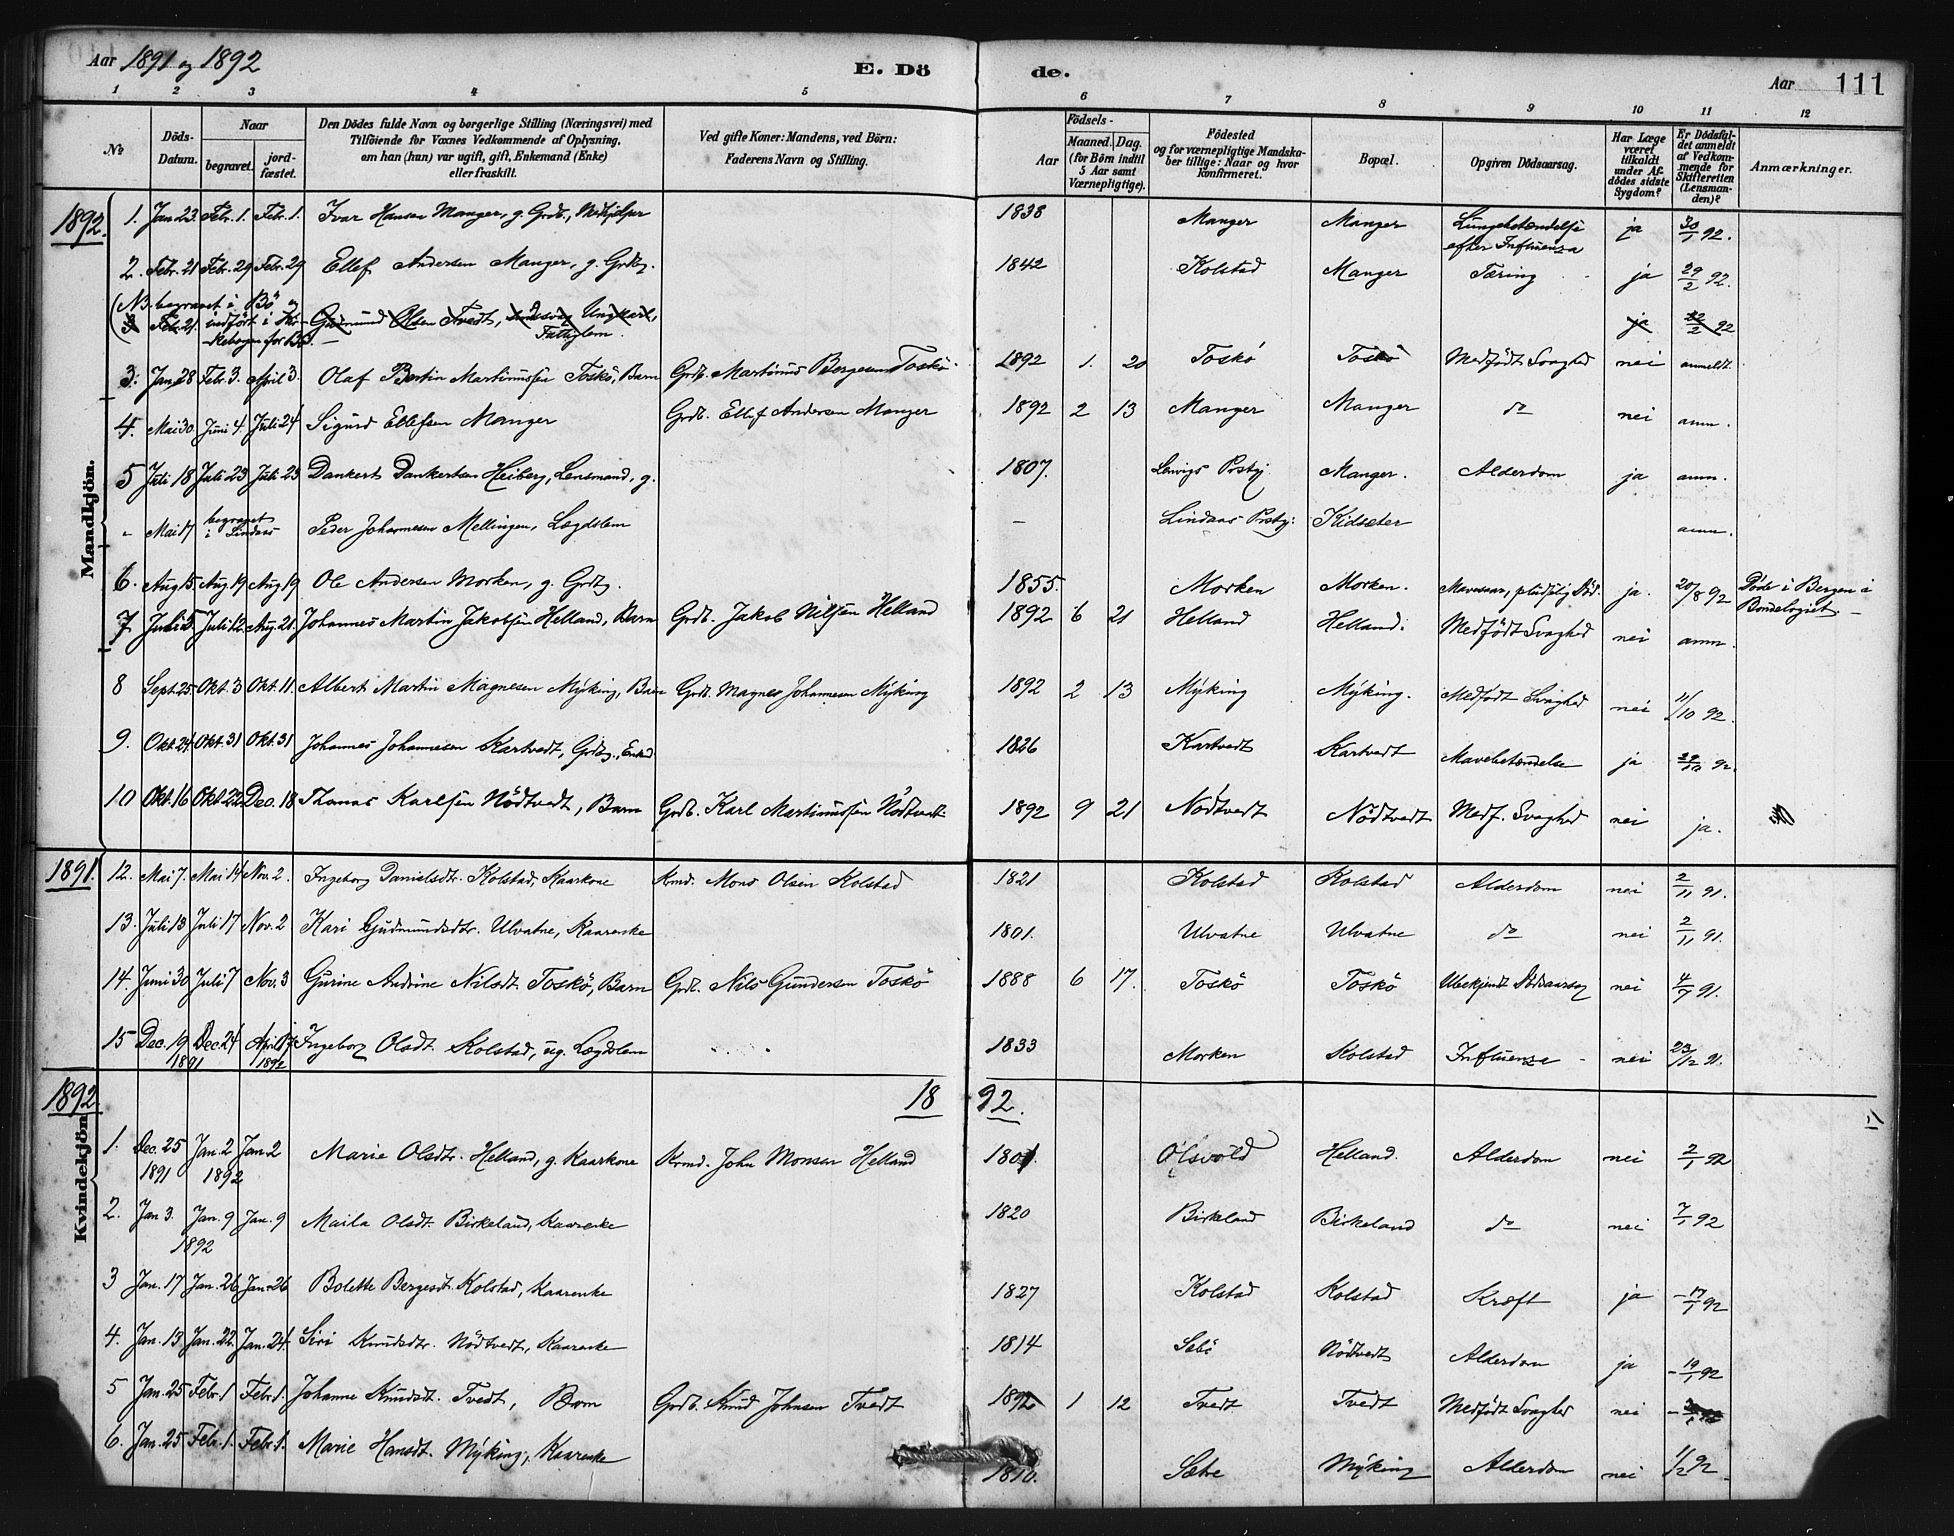 Aar 1891 og 1892
E. Dö
de.
Aar
111
1 2 3 4 5 6 7 8 9 10 11 12
No
Döds-Datum.
Naar
begravet.
jord-fæstet.
Den Dödes fulde Navn og borgerlige Stilling (Næringsvei) med
Tilföiende for Voxnes Vedkommende af Oplysning,
om han (hun) var ugift, gift, Enkemand (Enke)
eller fraskilt.
Ved gifte Koner: Mandens, ved Börn:
Faderens Navn og Stilling.
Födsels-
Aar
Maaned. Dag.
(for Börn indtil
5 Aar samt
Værnepligtige).
Födested
og for værnepligtige Mandska-
ber tillige: Naar og hvor
konfirmeret.
Bopæl.
Opgiven Dödsaarsag.
Har Læge
været
tilkaldt
under Af-
dödes sidste
Sygdom?
Er Dödsfal-
det anmeldt
af Vedkom-
mende for
Skifteretten
(Lensman-
den)?
Anmærkninger.
Mandkjön.
1892.
1. Jan 23 Febr. 1. Febr. 1. Ivar Hansen Manger, g. Grdb., 1838 Manger Manger Lungebetændelse efter Influenza ja 30/1 92.
2. Febr. 21 Febr. 29 Febr. 29 Ellef Andersen Manger, g. Grdbg. 1842 Kolstad Manger Tæring ja 29/2 92.
(NB. begravet i Bö og
3 Febr. 21. indført i Kir- Gudmund Olsen Tvedt, Ungkarl, ja 22/2 92
kebogen for Bö. Fattiglem.
3. Jan. 28 Febr. 3. April 3. Olaf Bertin Martinussen Toskö, Barn Grdb. Martinus Bergesen Toskö 1892 1. 20 Toskö Toskö Medfödt Svaghed nei anmeldt.
4. Mai 30. Juni 4. Juli 24 Sigurd Ellefsen Manger Grdb. Ellef Andersen Manger 1892 2 13 Manger Manger do nei anm.
5 Juli 18 Juli 23 Juli 23 Dankert Dankertsen Heiberg, Lensmand, g. 1807. Prstgj. Manger. Alderdom ja anm.
" Mai 17 begravet i Lindaas Peder Johannesen Mellingen, Lægdslem — Lindaas Prstgj: Kidsæter anm.
6. Aug 15 Aug 19 Aug 19 Ole Andersen Morken, g. Grdbg. 1855. Morken Morken. Mavesaar, pludselig Död. ja. 20/8 92 Döde i Bergen i Bondelogiet —
7 Juli 5 Juli 12. Aug. 21. Johannes Martin Jakobsen Helland, Barn Grdb. Jakob Nilsen Helland 1892 6 21 Helland Helland. Medfödt Svaghed nei anm.
8 Sept. 25 Okt. 3 Okt. 11. Albert Martin Magnesen Myking, Barn Grdb. Magnes Johannesen Myking 1892 2 13 Myking Myking. Medfödt Svaghed nei 11/10 92.
9. Okt. 24 Okt. 31 Okt. 31 Johannes Johannesen Kartvedt, Grdbg., Enkd 1826 Kartvedt Kartvedt Mavebetændelse ja 29/10 92.
10 Okt. 16 Okt. 22 Dec. 18 Thomas Karlsen Nödtvedt, Barn Grdb. Karl Martinussen Nödtvedt 1892 9 21 Nödtvedt Nödtvedt Medf. Svaghed nei ja.
1891.
12. Mai 7. Mai 14 Nov. 2. Ingeborg Danielsdtr. Kolstad, Kaarkone Krmd. Mons Olsen Kolstad 1821 Kolstad Kolstad Alderdom nei 2/11 91.
13. Juli 13 Juli 17 Nov. 2 Kari Gudmundsdtr. Ulvatne, Kaarenke 1801. Ulvatne Ulvatne do nei 2/11 91.
14. Juni 30 Juli 7 Nov. 3 Gurine Andrine Nilsdt. Toskö, Barn Grdb. Nils Gundersen Toskö 1888 6 17. Toskö Toskö Ubekjendt Dödsaarsag nei 4/7 91.
15 Dec. 19 1891 Dec. 24 April 1892 Ingeborg Olsdt. Kolstad, ug. Lægdslem 1833 Morken Kolstad Influenza nei 23/12 91.
1892
Kvindekjön.
18 92.
1. Dec. 25 1891 Jan. 2 1892 Jan. 2 Marie Olsdtr. Helland, g. Kaarkone Krmd. John Monsen Helland 1801. Olsvold Helland. Alderdom nei 2/1 92
2. Jan 3. Jan. 9 1892 Jan. 9 Maila Olsdt. Birkeland, Kaarenke 1820 Birkeland Birkeland do nei 7/1 92
3 Jan. 17 Jan. 26 Jan. 26 Bolette Bergesdt. Kolstad, Kaarenke 1827 Kolstad Kolstad Kræft ja 17/1 92
4. Jan. 13 Jan. 22. Jan. 24. Siri Knudsdtr. Nödtvedt, Kaarenke 1814 Sæbö Nödtvedt Alderdom ja 19/1 92
5 Jan. 25 Febr. 1 Febr. 1. Johanne Knudsdt. Tvedt, Barn Grdb. Knud Johnsen Tvedt 1892 1 12 Tvedt Tvedt Medfödt Svaghed nei
6. Jan. 25 Febr. 1. Febr. 1. Marie Hansdt. Myking, Kaarenke 1810. Sætre Myking Alderdom nei 1/2 92